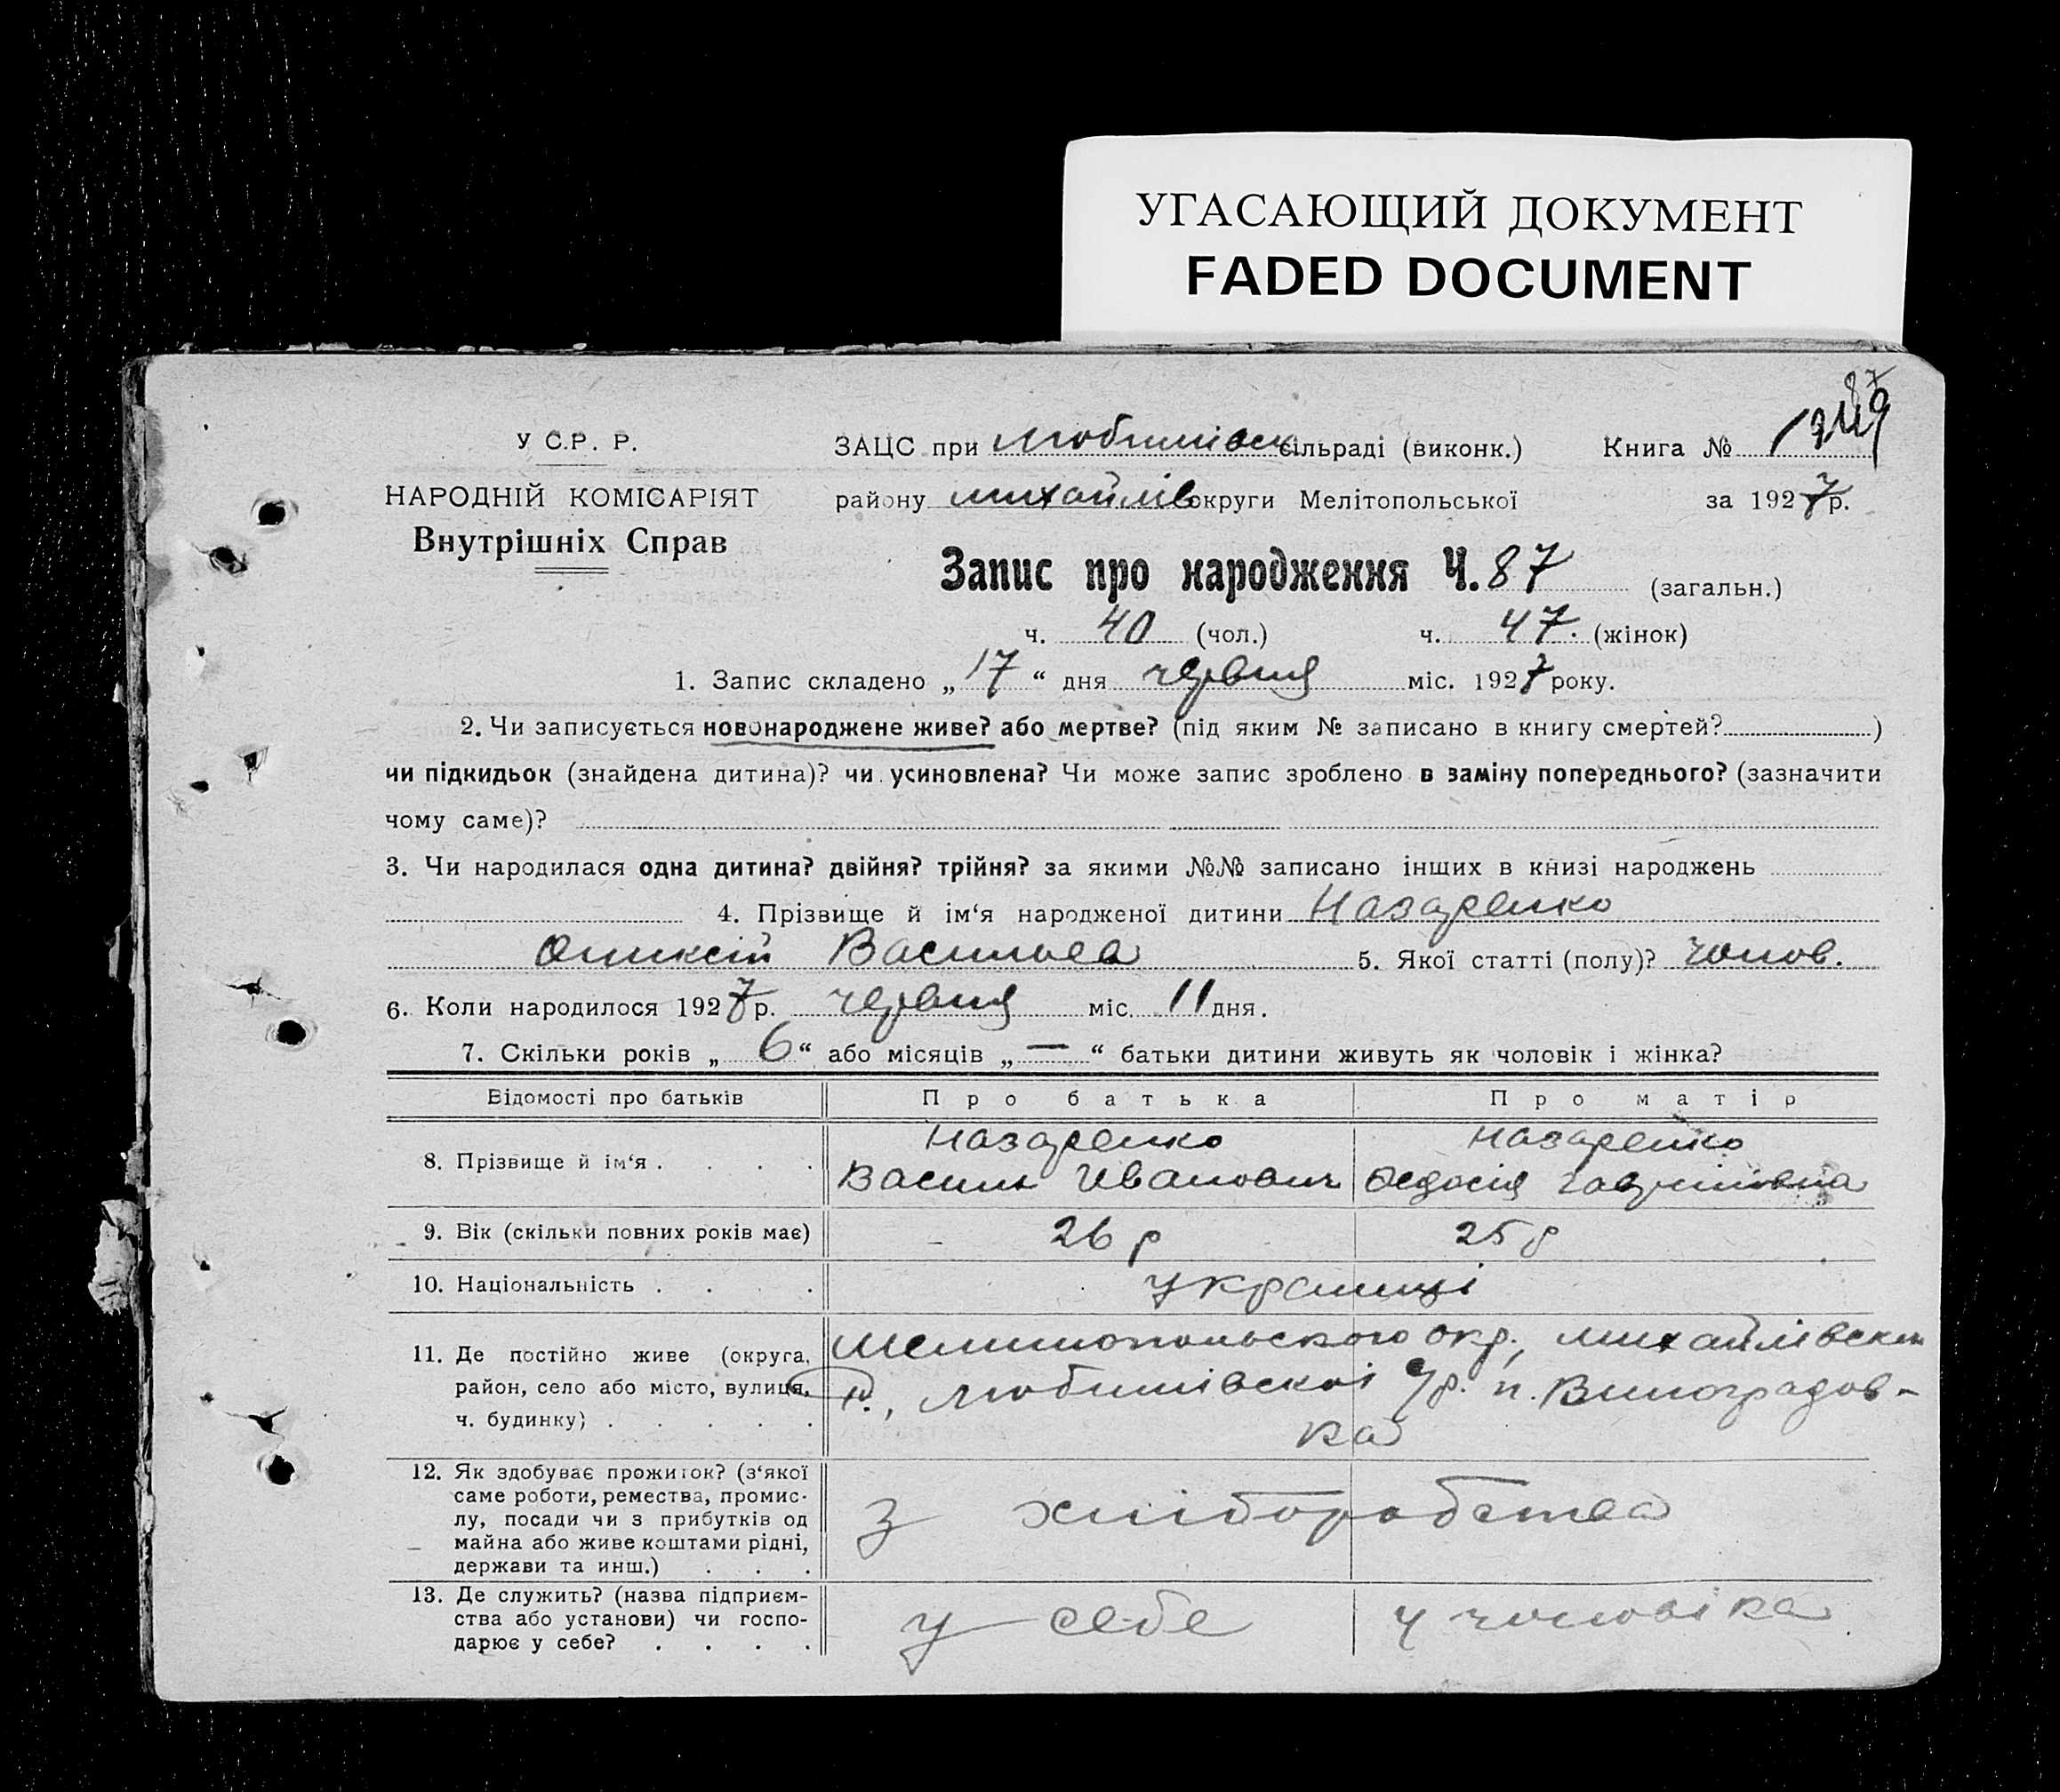 УГАСАЮЩИЙ ДОКУМЕНТ
FADED DOCUMENT
87
У С.Р. Р.
ЗАЦС при Любимівск сільраді (виконк.) Книга №
НАРОДНІЙ КОМІСАРІЯТ
району михайлів округи Мелітопольської за 1927 р.
Внутрішніх Справ
Запис про народження Ч. 87 (загальн.)
ч. 40 (чол.) ч. 47. (жінок)
1. Запис складено „ 17 “ дня червня міс. 1927 року.
2. Чи записується новонароджене живе? або мертве? (під яким № записано в книгу смертей? )
чи підкидьок (знайдена дитина)? чи усиновлена? Чи може запис зроблено в заміну попереднього? (зазначити
чому саме)?
3. Чи народилася одна дитина? двійня? трійня? за якими №№ записано інших в книзі народжень
4. Прізвище й ім‘я народженої дитини Назаренко
Оликсій Васильев 5. Якої статті (полу)? чолов.
6. Коли народилося 1927 р. червня міс. 11 дня.
7. Скільки років „ 6 “ або місяців „ — “ батьки дитини живуть як чоловік і жінка?
Відомості про батьків Про батька Про матір
8. Прізвище й ім‘я . . . . Назаренко Василь Иванович Назаренко Федосія Гаврилівна
9. Вік (скільки повних років має) 26 р 25 р
10. Національність . . . українці
11. Де постійно живе (округа, район, село або місто, вулиця, ч. будинку) . . . . . Мелитопольского окр., михайлівск
р., Любимівскої с/р. п. Виноградов-
ка
12. Як здобуває прожиток? (з‘якої
саме роботи, ремества, промис-
лу, посади чи з прибутків од
майна або живе коштами рідні,
держави та инш.) . . . з хліборобства
13. Де служить? (назва підприєм-
ства або установи) чи госпо-
дарює у себе? . . . . у себе у чоловіка